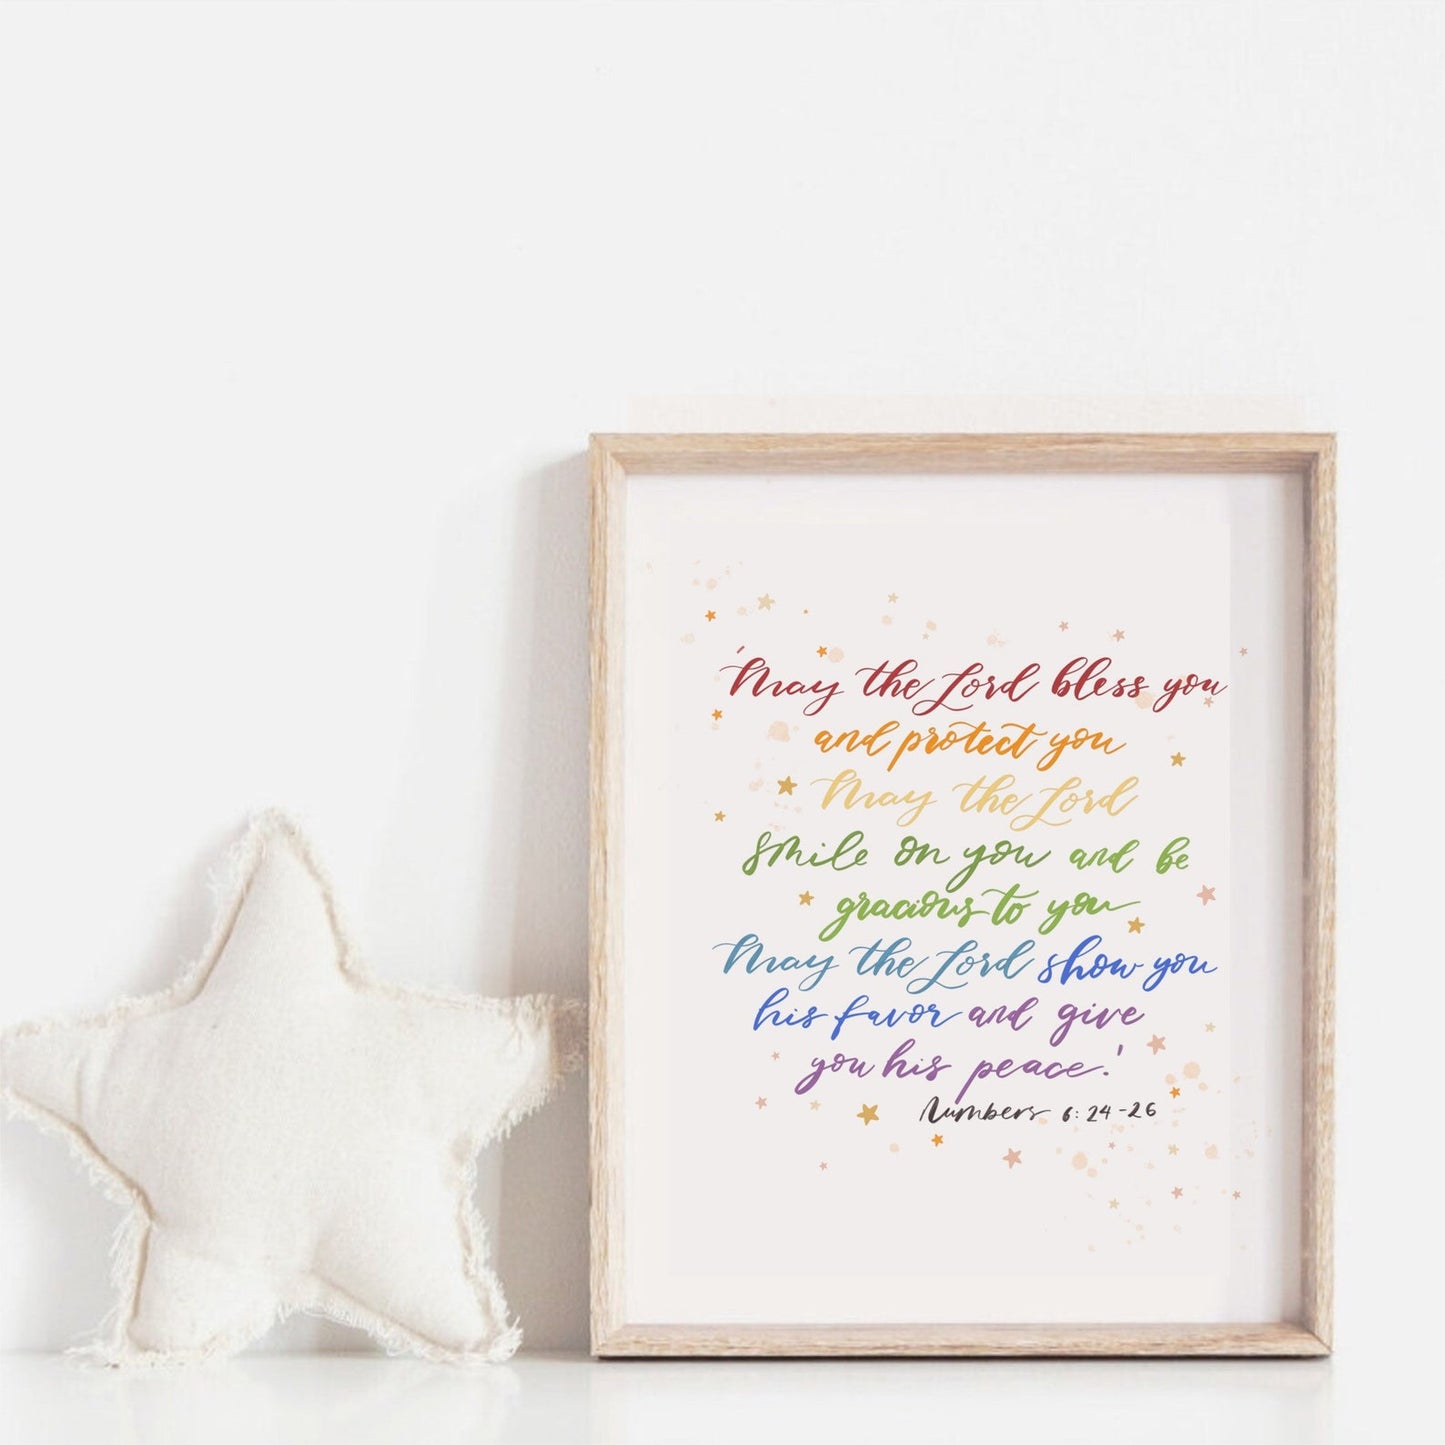 'May the Lord bless you
and protect you
May the Lord
smile on you and be
gracious to you
May the Lord show you
his favor and give
you his peace.'
Numbers 6:24-26